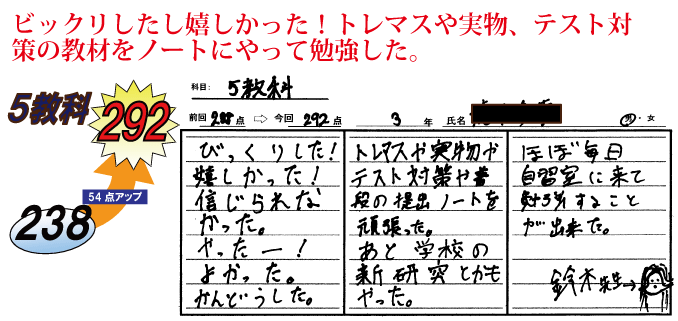 ビックリしたし嬉しかった！トレマスや実物、テスト対
策の教材をノートにやって勉強した。
5教科
292
54点アップ
238
科目: 5教科
前回 238点 ⇨ 今回 292点 3年 氏名 男・女
びっくりした!
嬉しかった!
信じられな
かった。
やったー!
よかった。
かんどうした。
トレマスや実物や
テスト対策や普
段の提出ノートを
頑張った。
あと学校の
新研究とかも
やった。
ほぼ毎日
自習室に来て
勉強すること
が出来た。
鈴木先生→